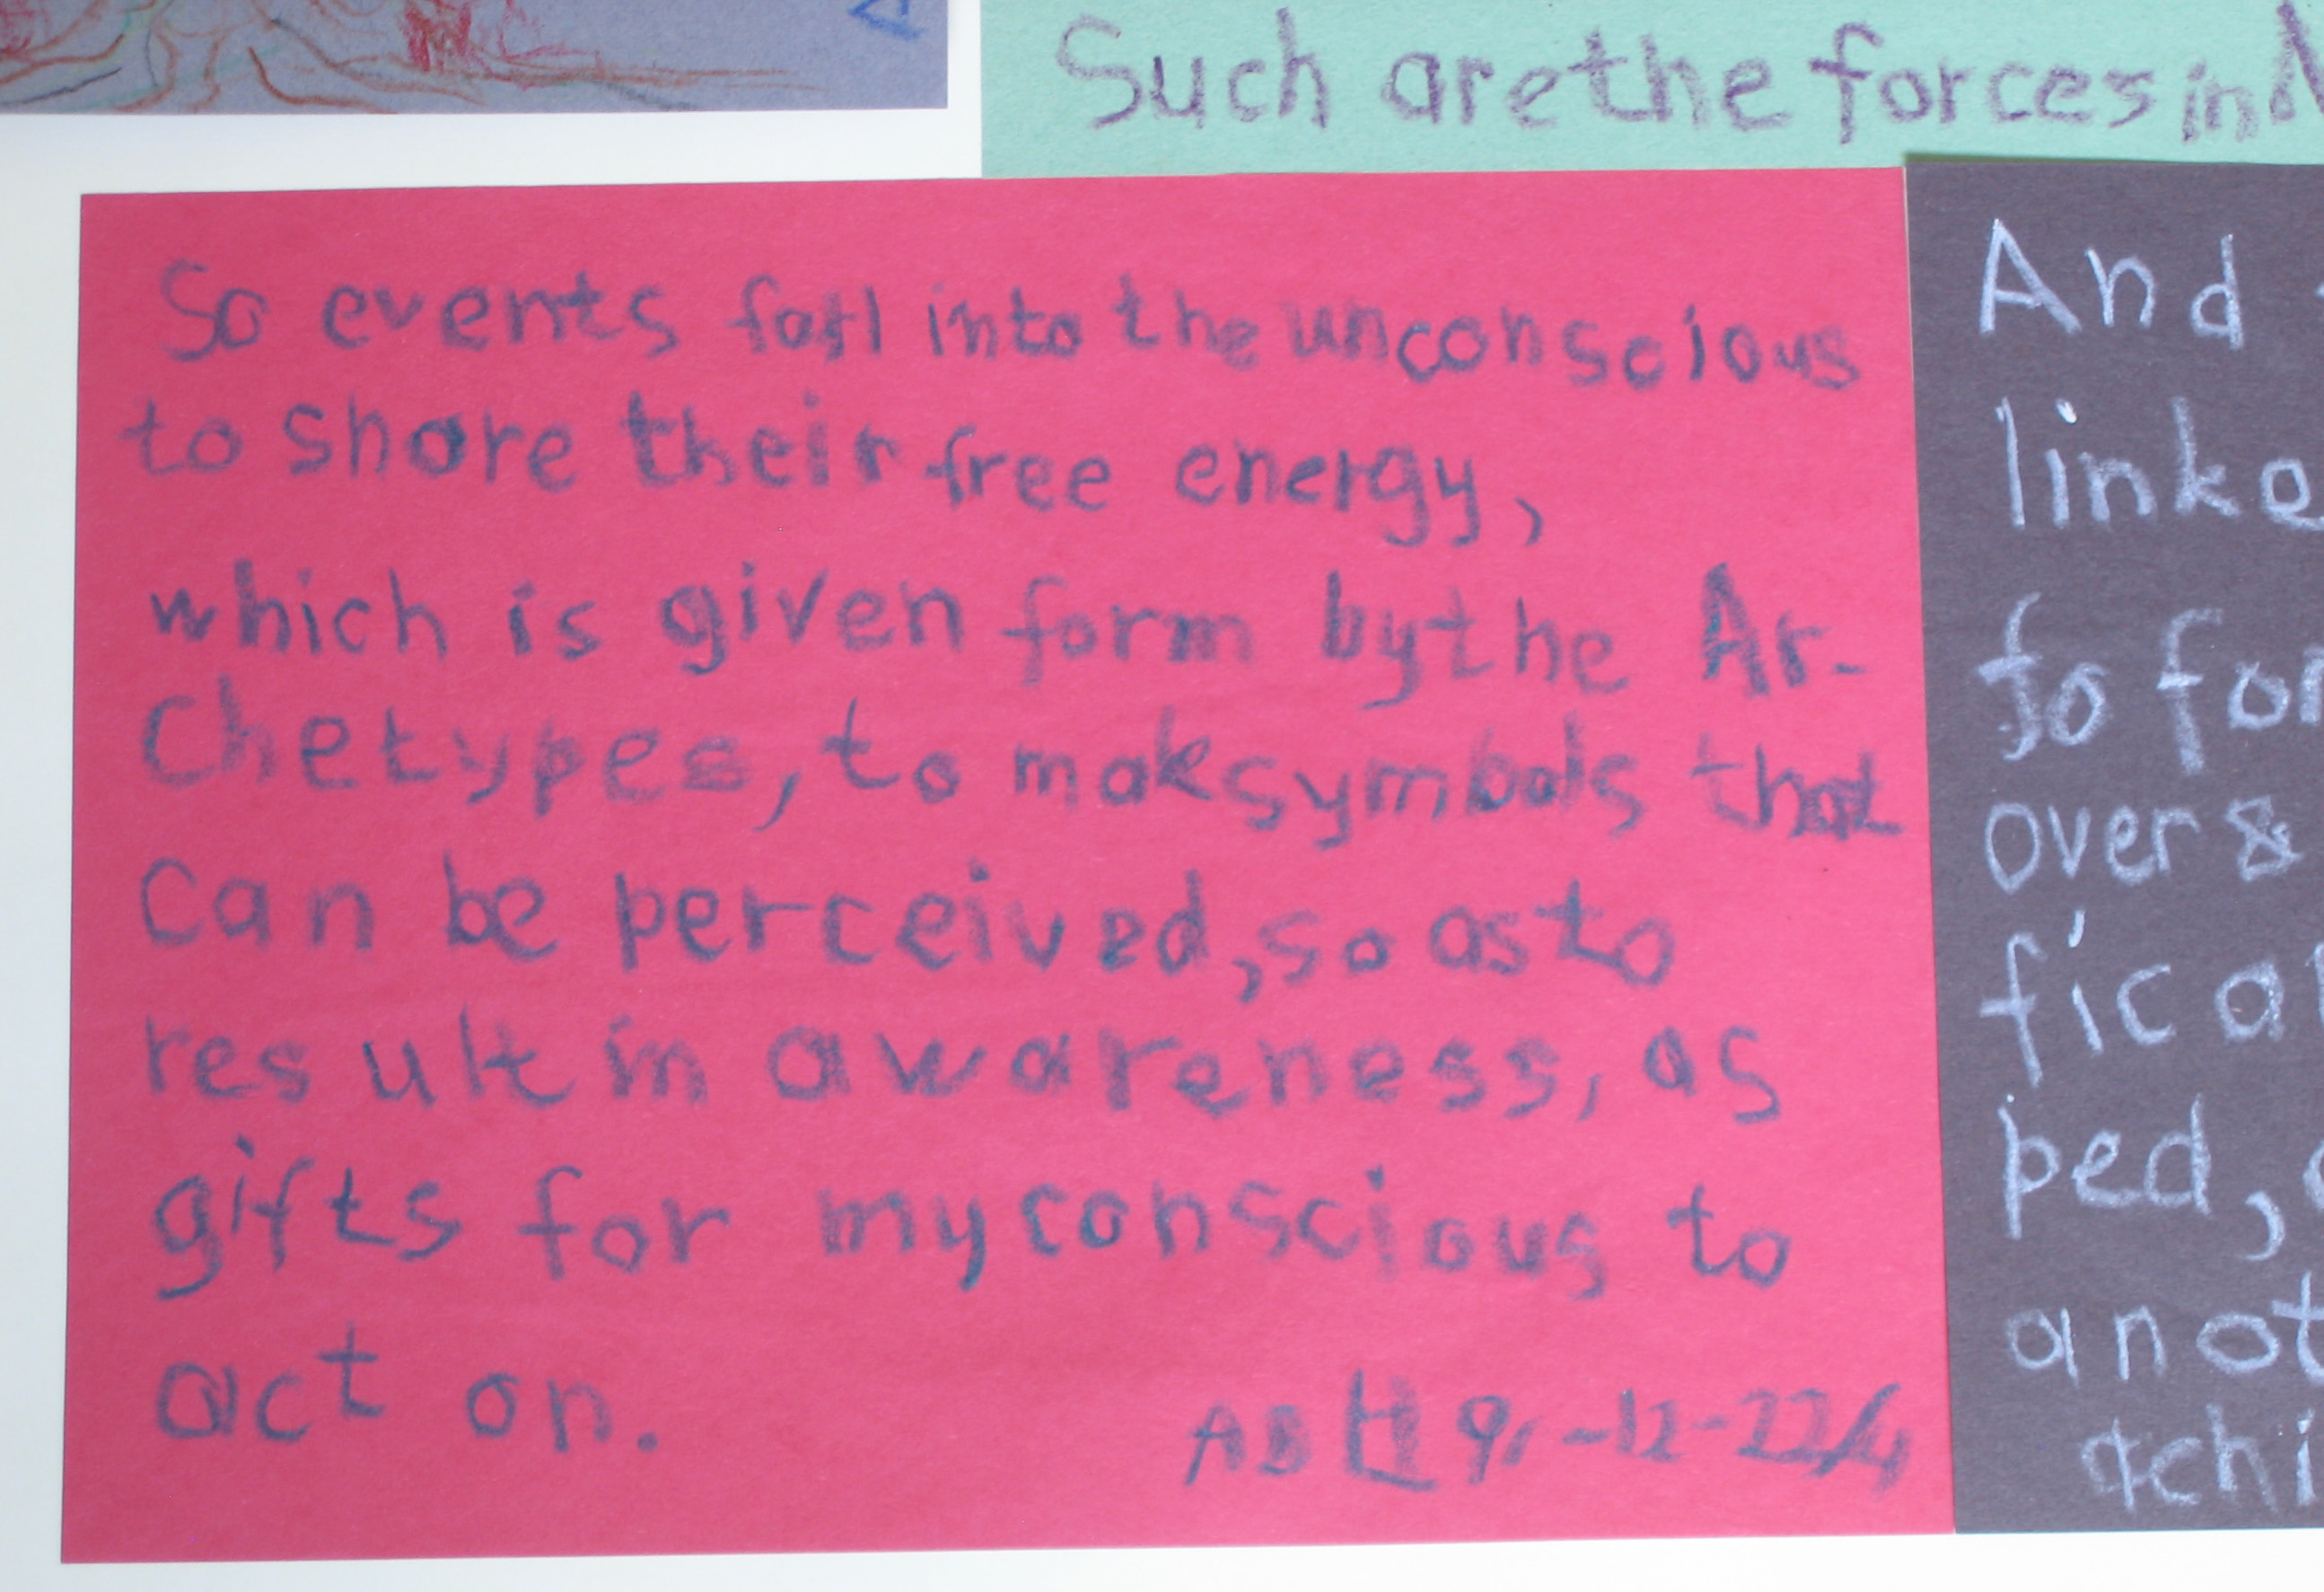 Such are the forces in
So events fall into the unconscious
to share their free energy,
which is given form by the Ar-
chetypes, to mak symbols that
can be perceived, so as to
result in awareness, as
gifts for my conscious to
act on.
And
linke
to for
over &
fic at
ped,
anot